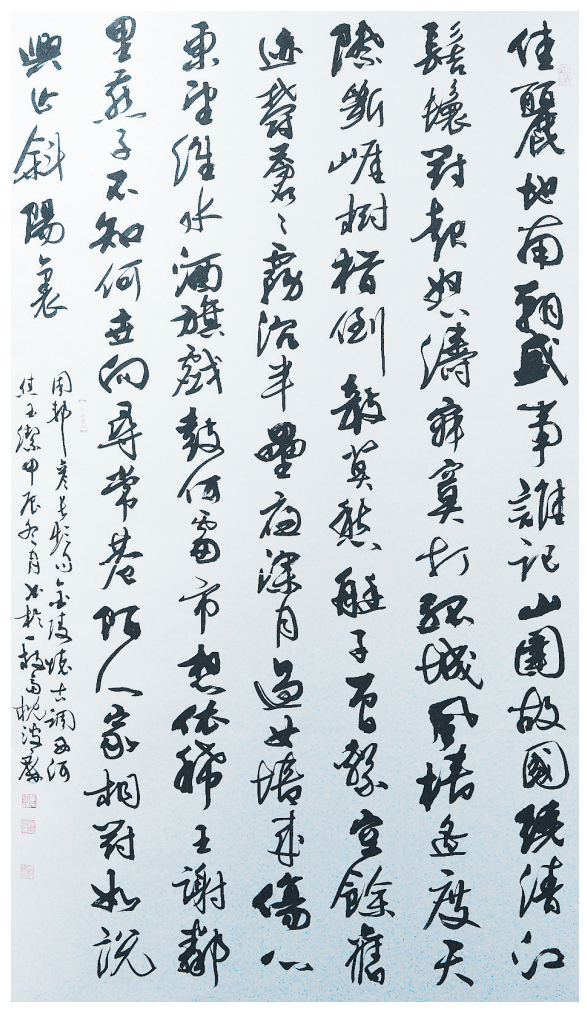 佳麗地南朝盛事誰記山圍故國繞清江
髻鬟對起怒濤寂寞打孤城風檣遙度天
際斷崖樹猶倒敧莫愁艇子曾繫空餘舊
迹鬱蒼〻霧沉半壘夜深月過女墻來傷心
東望淮水酒旗戲鼓何處市想依稀王謝鄰
里燕子不知何世向尋常巷陌人家相對如說
興亡斜陽裏
周邦彥長短句金陵懷古調西河
焦玉潔甲辰冬月書於一